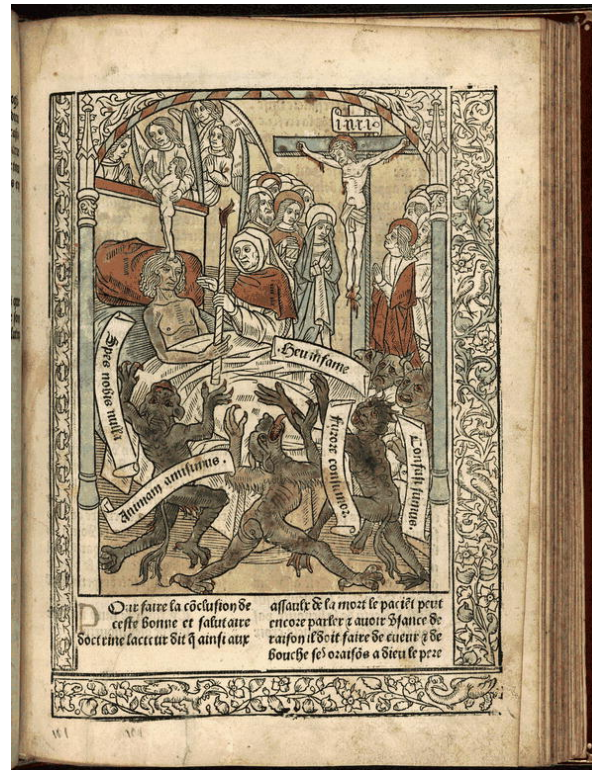 I·N·R·I·
Heu infame
Spes nobis nulla
Animam amisimus.
furore consumor.
Confusi sumus.
POur faire la cõclusion de
ceste bonne et salutaire
doctrine lacteur dit q̃ ainsi aux
assaulx de la mort le paciẽt peut
encore parler ⁊ avoir usance de
raison il doit faire de cueur ⁊ de
bouche ses oraisõs a dieu le pere